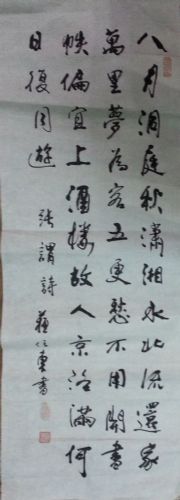 八月洞庭秋瀟湘水北流還家
萬里夢為客五更愁不用開書
帙偏宜上酒樓故人京洛滿何
日復同遊
張謂詩 書